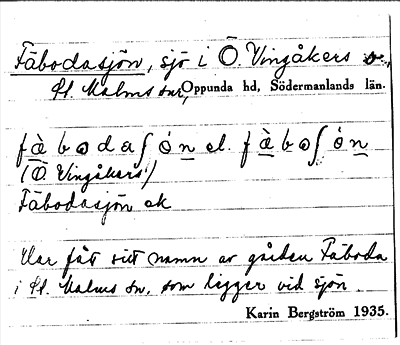 Fäbodasjön, sjö i Ö. Vingåkers o.
St. Malms snr, Oppunda hd, Södermanlands län.
fä̀bodaʃó̱n el. fä̀boʃó̱n
(Ö. Vingåkers)
Fäbodasjön ek
Har fått sitt namn av gården Fäboda
i St. Malms sn, som ligger vid sjön.
Karin Bergström 1935.